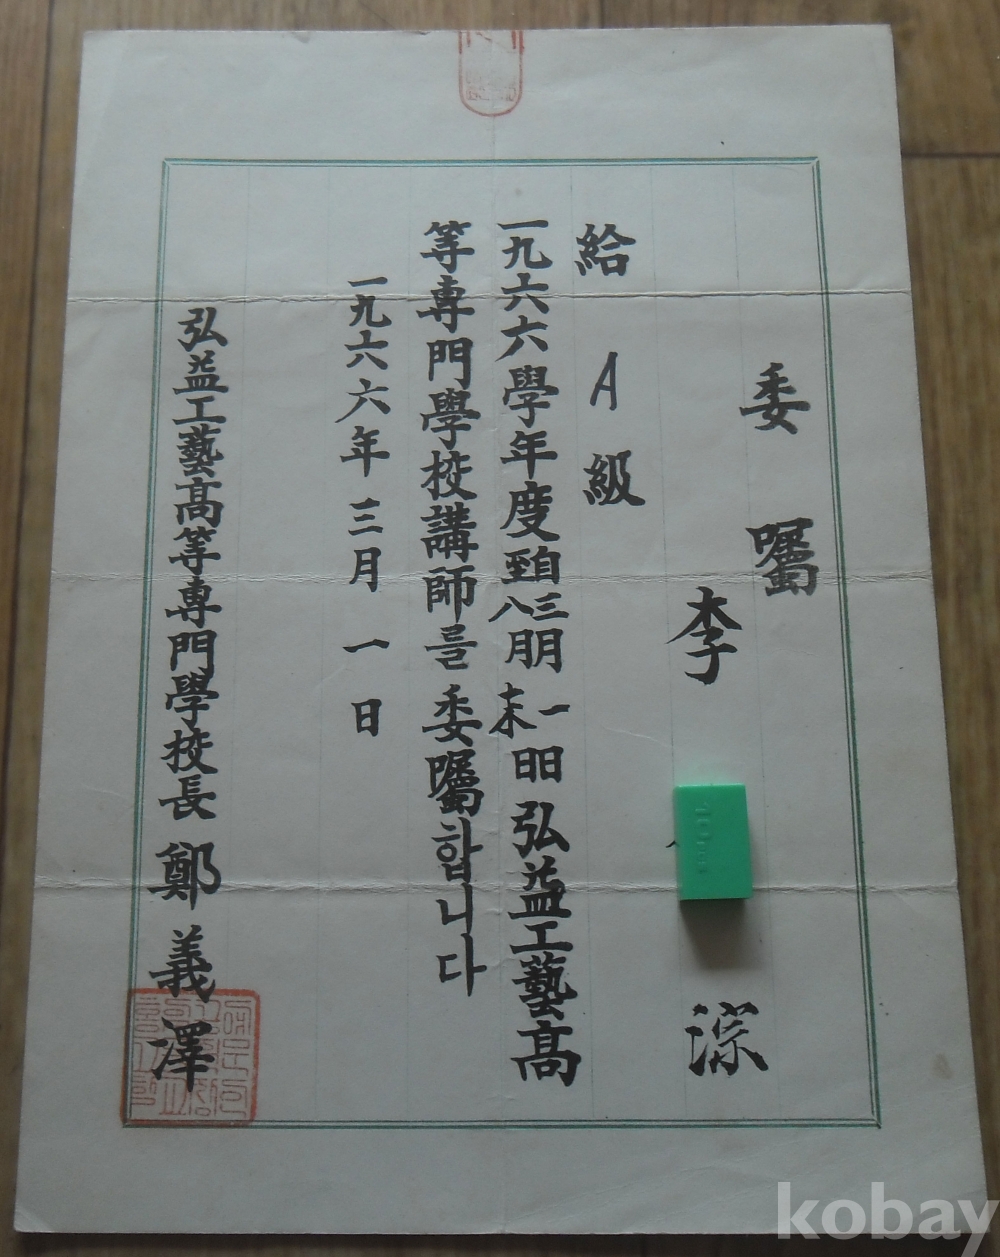 委囑
李 淙
給 A 級
一九六六學年度自三月一日至八月末日弘益工藝高
等専門學校講師를 委囑합니다
一九六六年 三月 一日
弘益工藝高等専門學校長 鄭義澤
kobay